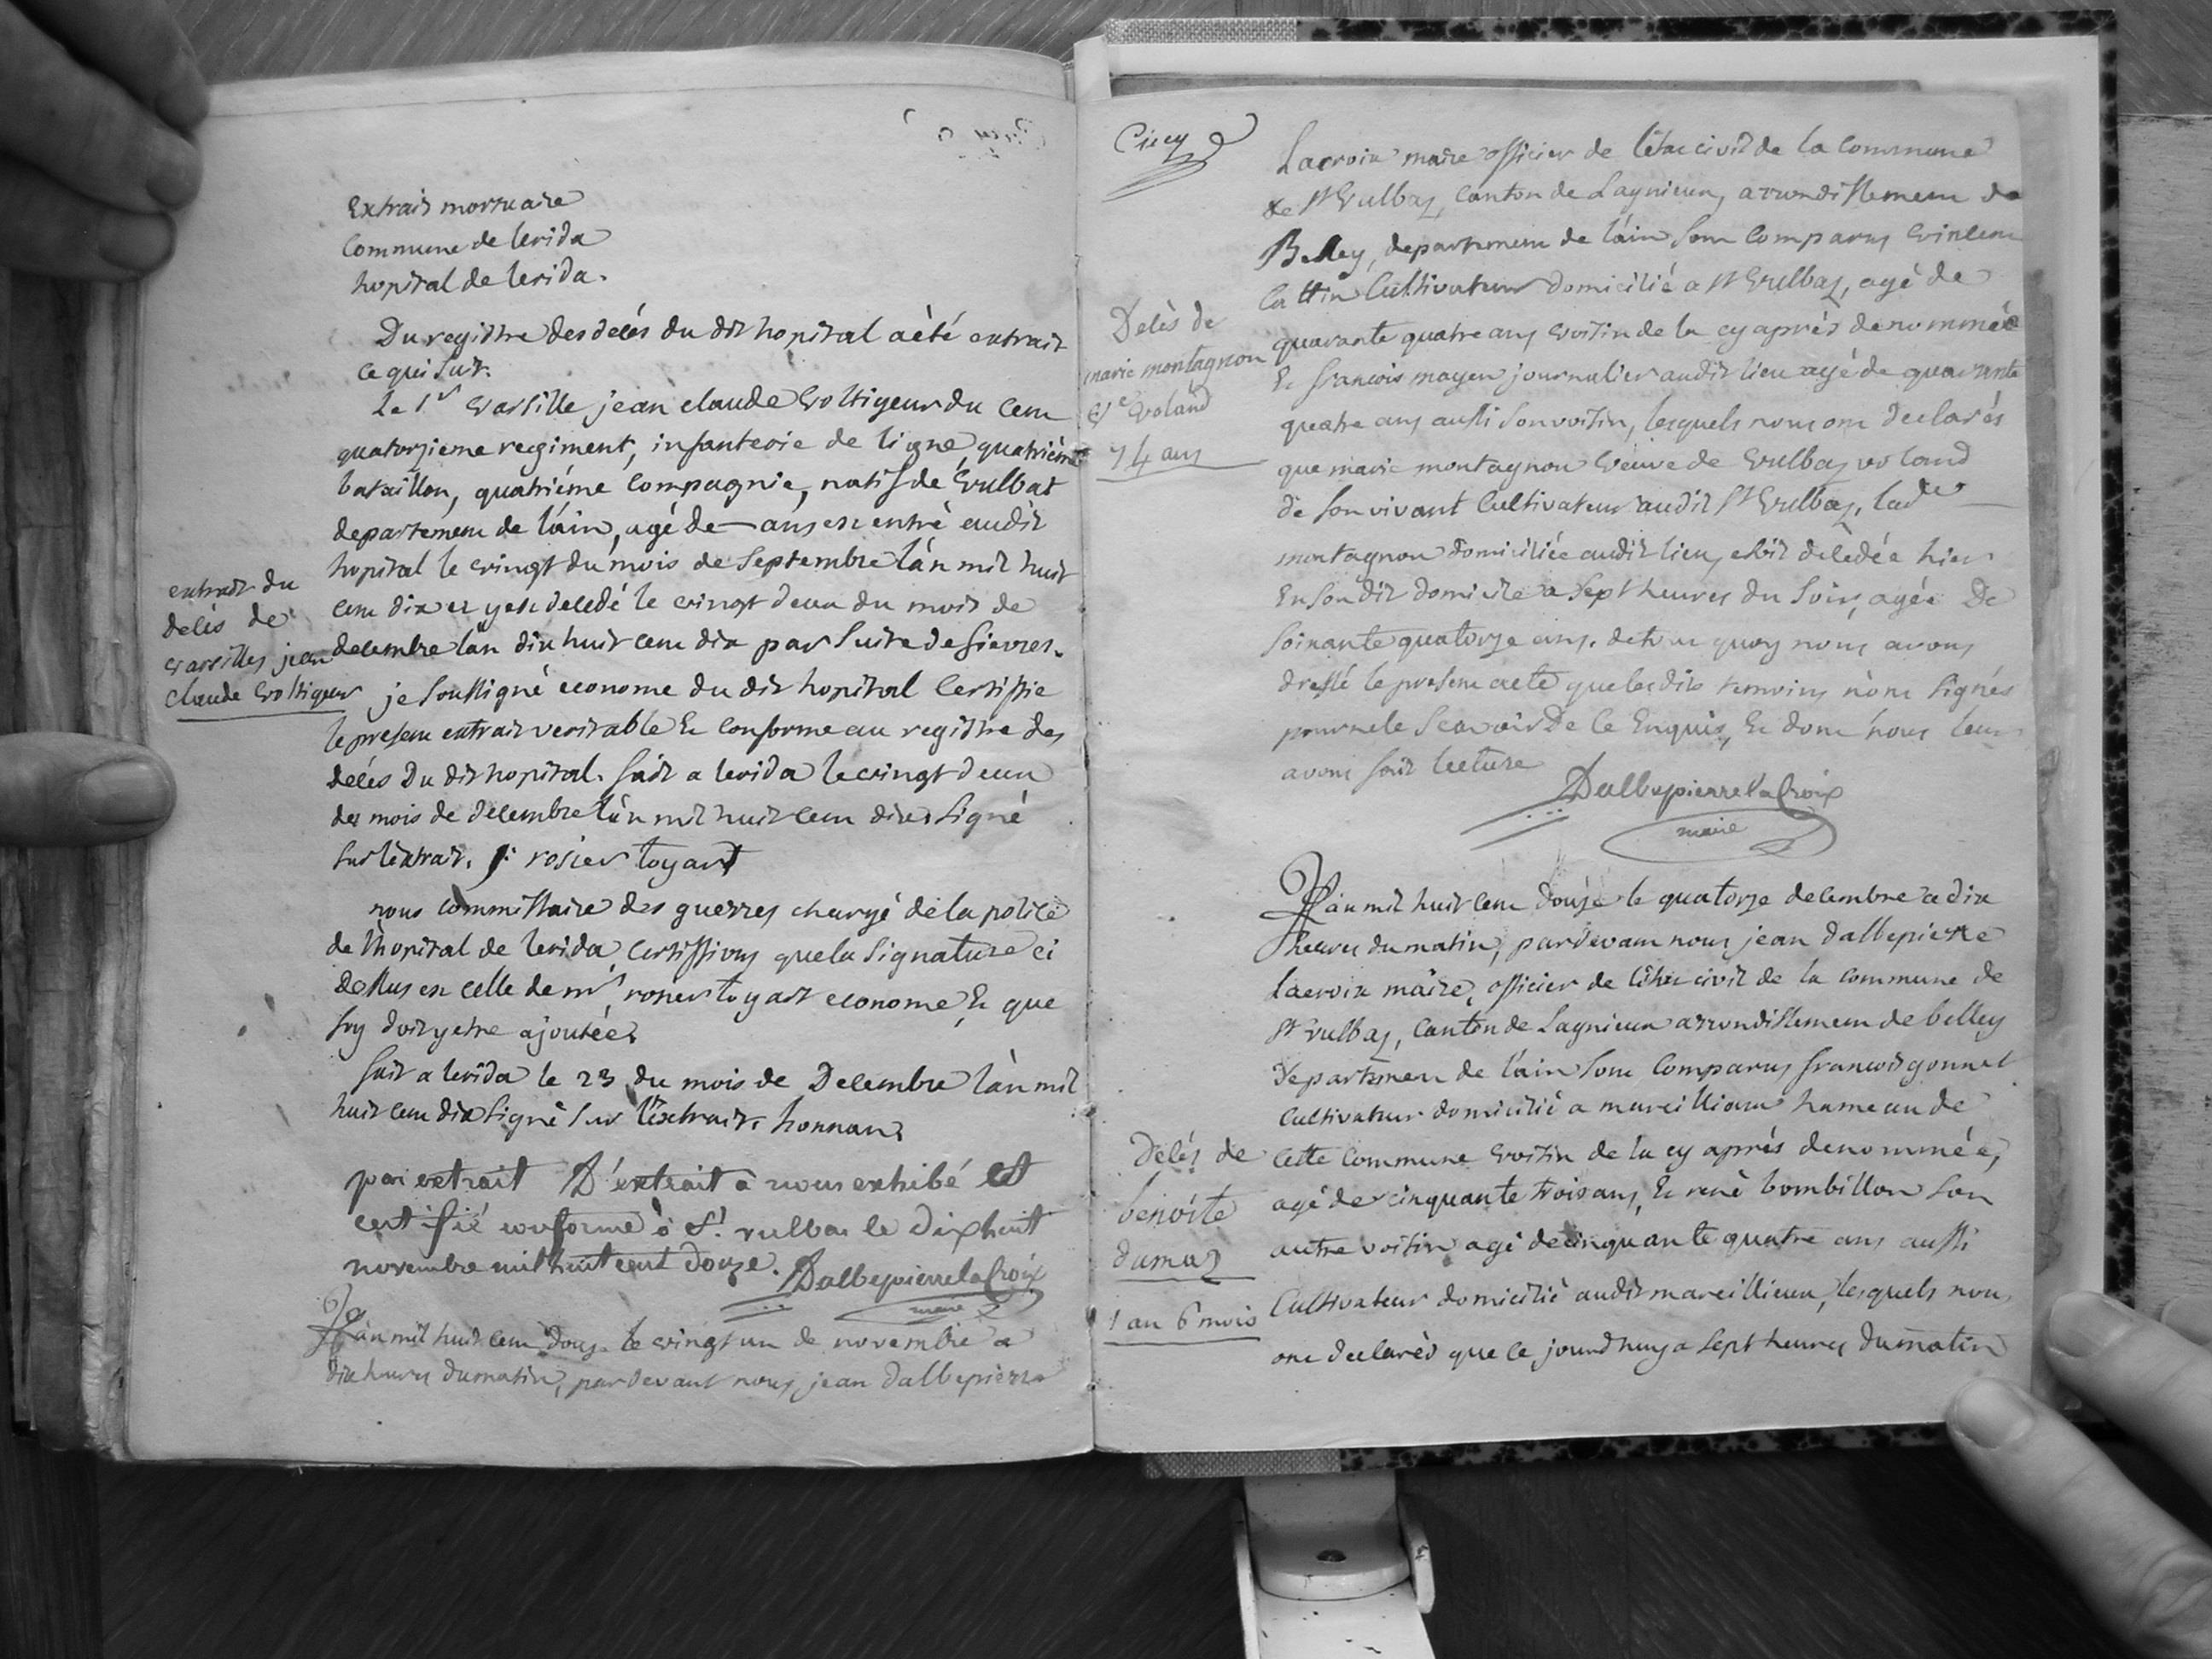 Extrait mortuaire
Commune de lerida
hopital de lerida.
Du registre des décés du dit hopital a èté extrait
ce qui suit.
Le Sr vassille jean claude voltigeur du cent
quatorzieme regiment, infanterie de ligne, quatriéme
bataillon, quatriéme compagnie, natif de vulbas
departement de l'ain, agé de — ans est entré audit
hopital le vingt du mois de septembre l'an mil huit
cent dix et y est decedé le vingt deux du mois de
decembre l'an dix huit cent dix par suite de fievres.
extrait du
décès de
vassilles jean
claude voltigeur
je soussigné econome du dit hopital certiffie
le present extrait veritable Et conforme au registre des
décés du dit hopital. fait a lerida le vingt deux
des mois de decembre l'an mil huit cent dix. signé
sur l'extrait. rosier toyart
nous commissaire des guerres chargé de la police
de l'hopital de lerida certiffions que la signature ci
dessus est celle de mr rosier toyart econome, Et que
foy doit y etre ajoutée.
fait a lerida le 23 du mois de Decembre l'an mil
huit cent dix signé sur l'extrait. honnan.
par extrait D'extrait à nous exhibé et
certifié conforme à St. vulbas le dixhuit
novembre mil huit cent douze. Dallepierre la Croix
maire
L'an mil huit cent douze le vingt un de novembre a
dix heures du matin, pardevant nous jean dallepierre
Lacroix maire officier de l'état civil de la commune
de St Vulbas, canton de Lagnieux, arrondissement de
Belley, departement de l'ain sont comparus vincent
cottin cultivateur domicilié a St Vulbas, agé de
quarante quatre ans voisin de la cy aprés denommée
Et francois mayeu journalier audit lieu agé de quarante
quatre ans aussi son voisin, lesquels nous ont declarés
que marie montagnon veuve de vulbas voland
de son vivant cultivateur audit St Vulbas, lade
montagnon domiciliée audit lieu, etoit décedée hier
en son dit domicile a sept heures du soir, agée de
soixante quatorze ans. de tout quoy nous avons
dressé le present acte que lesdits temoins n'ont signés
pour ne le scavoir de ce Enquis, Et dont nous leur
avons fait lecture
Dallepierre la Croix
maire
Décès de
marie montagnon
ve voland
74 ans
L'an mil huit cent douze le quatorze decembre a dix
heures du matin, pardevant nous jean dallepierre
Lacroix maire, officier de l'état civil de la commune de
St vulbas, canton de Lagnieux arrondissement de belley
departement de l'ain sont comparus francois gonnet
cultivateur domicilié a marcillieux hameau de
cette commune voisin de la cy aprés denommée,
agé de cinquante trois ans, Et renè bombillon son
autre voisin agé de cinquante quatre ans aussi
cultivateur domicilié audit marcillieux, lesquels nous
ont declarés que ce jourd'huy a sept heures du matin
Décés de
benoite
dumas
1 an 6 mois